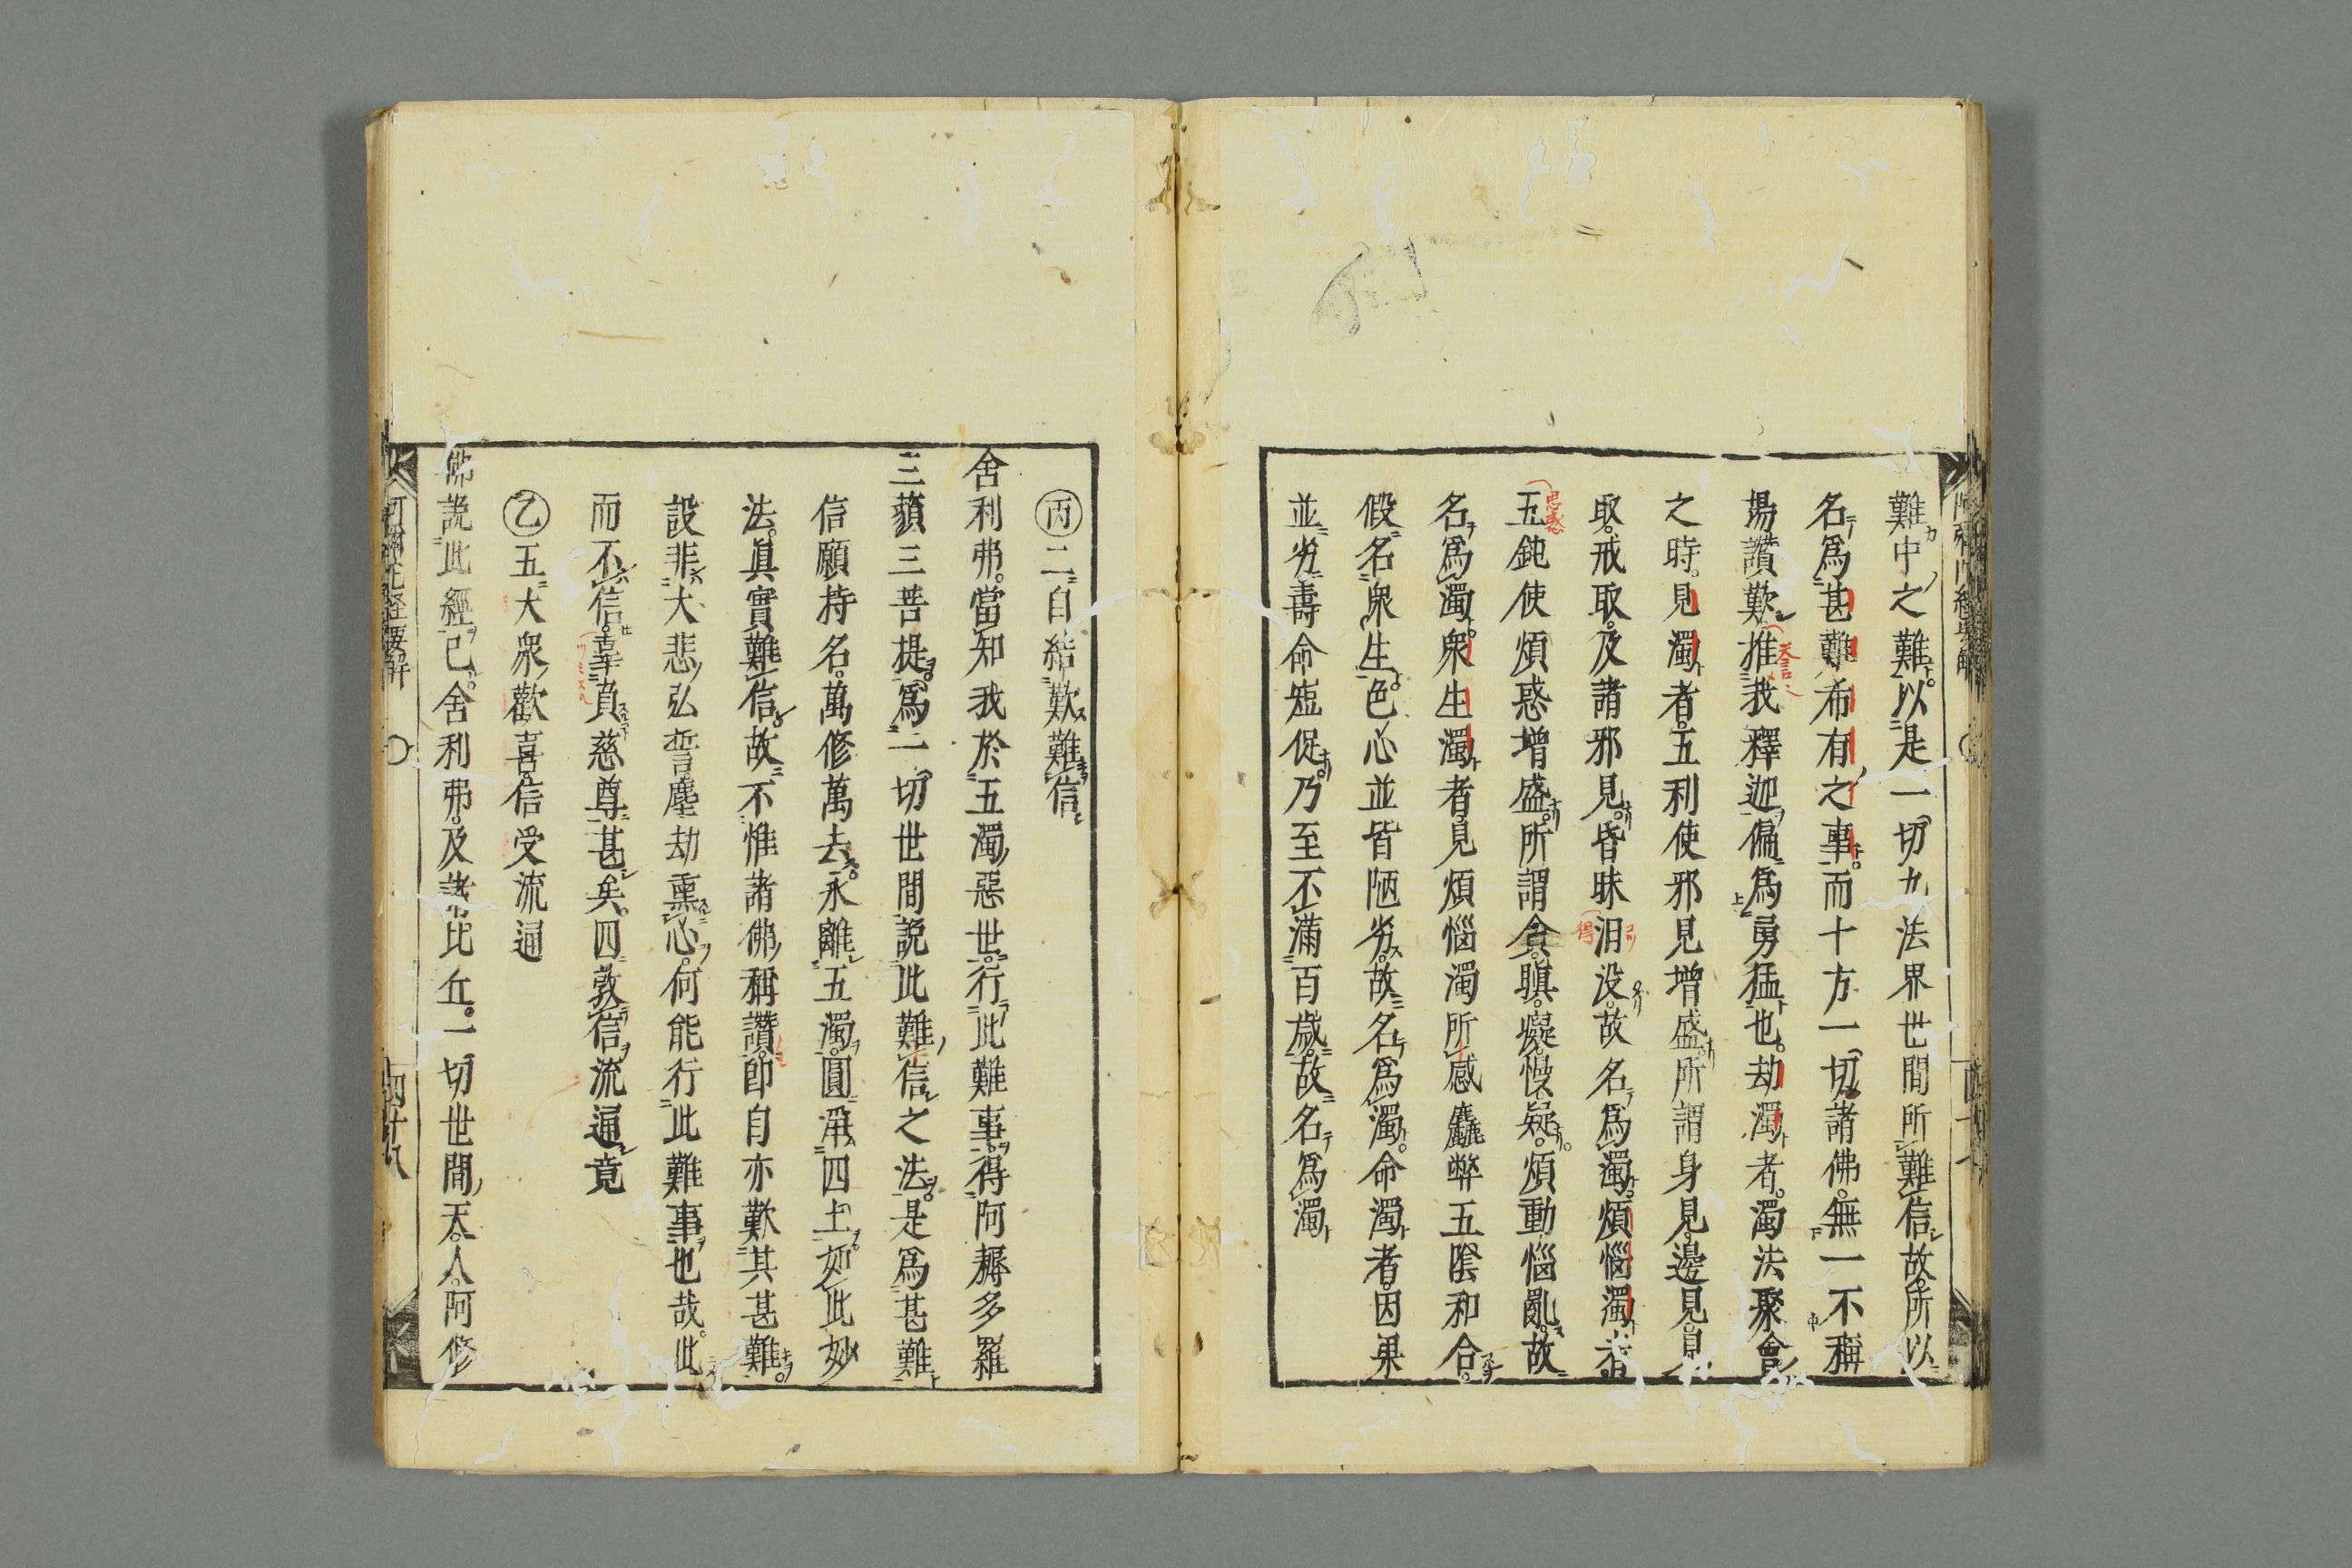 難中之難以是一切九法界世間所難信故所以
名爲甚難希有之事而十方一切諸佛無一不稱
揚讚歎推我釋迦偏爲勇猛也劫濁者濁法聚會
之時見濁者五利使邪見增盛所謂身見邊見見
取戒取及諸邪見昏昧汨没故名爲濁煩惱濁者
五鈍使煩惑增盛所謂貪瞋癡慢疑煩動惱亂故
名爲濁衆生濁者見煩惱濁所感麤弊五陰和合
假名衆生色心並皆陋劣故名爲濁命濁者因果
並劣壽命短促乃至不滿百歲故名爲濁
丙二自結歎難信
舍利弗當知我於五濁惡世行此難事得阿耨多羅
三藐三菩提爲一切世間說此難信之法是爲甚難
信願持名萬修萬去永離五濁圓淨四土如此妙
法眞實難信故不惟諸佛稱讚卽自亦歎其甚難
設非大悲弘誓塵劫熏心何能行此難事也哉此
而不信辜負慈尊甚矣四敦信流通竟
乙五大衆歡喜信受流通
佛說此經已舍利弗及諸比丘一切世間天人阿修